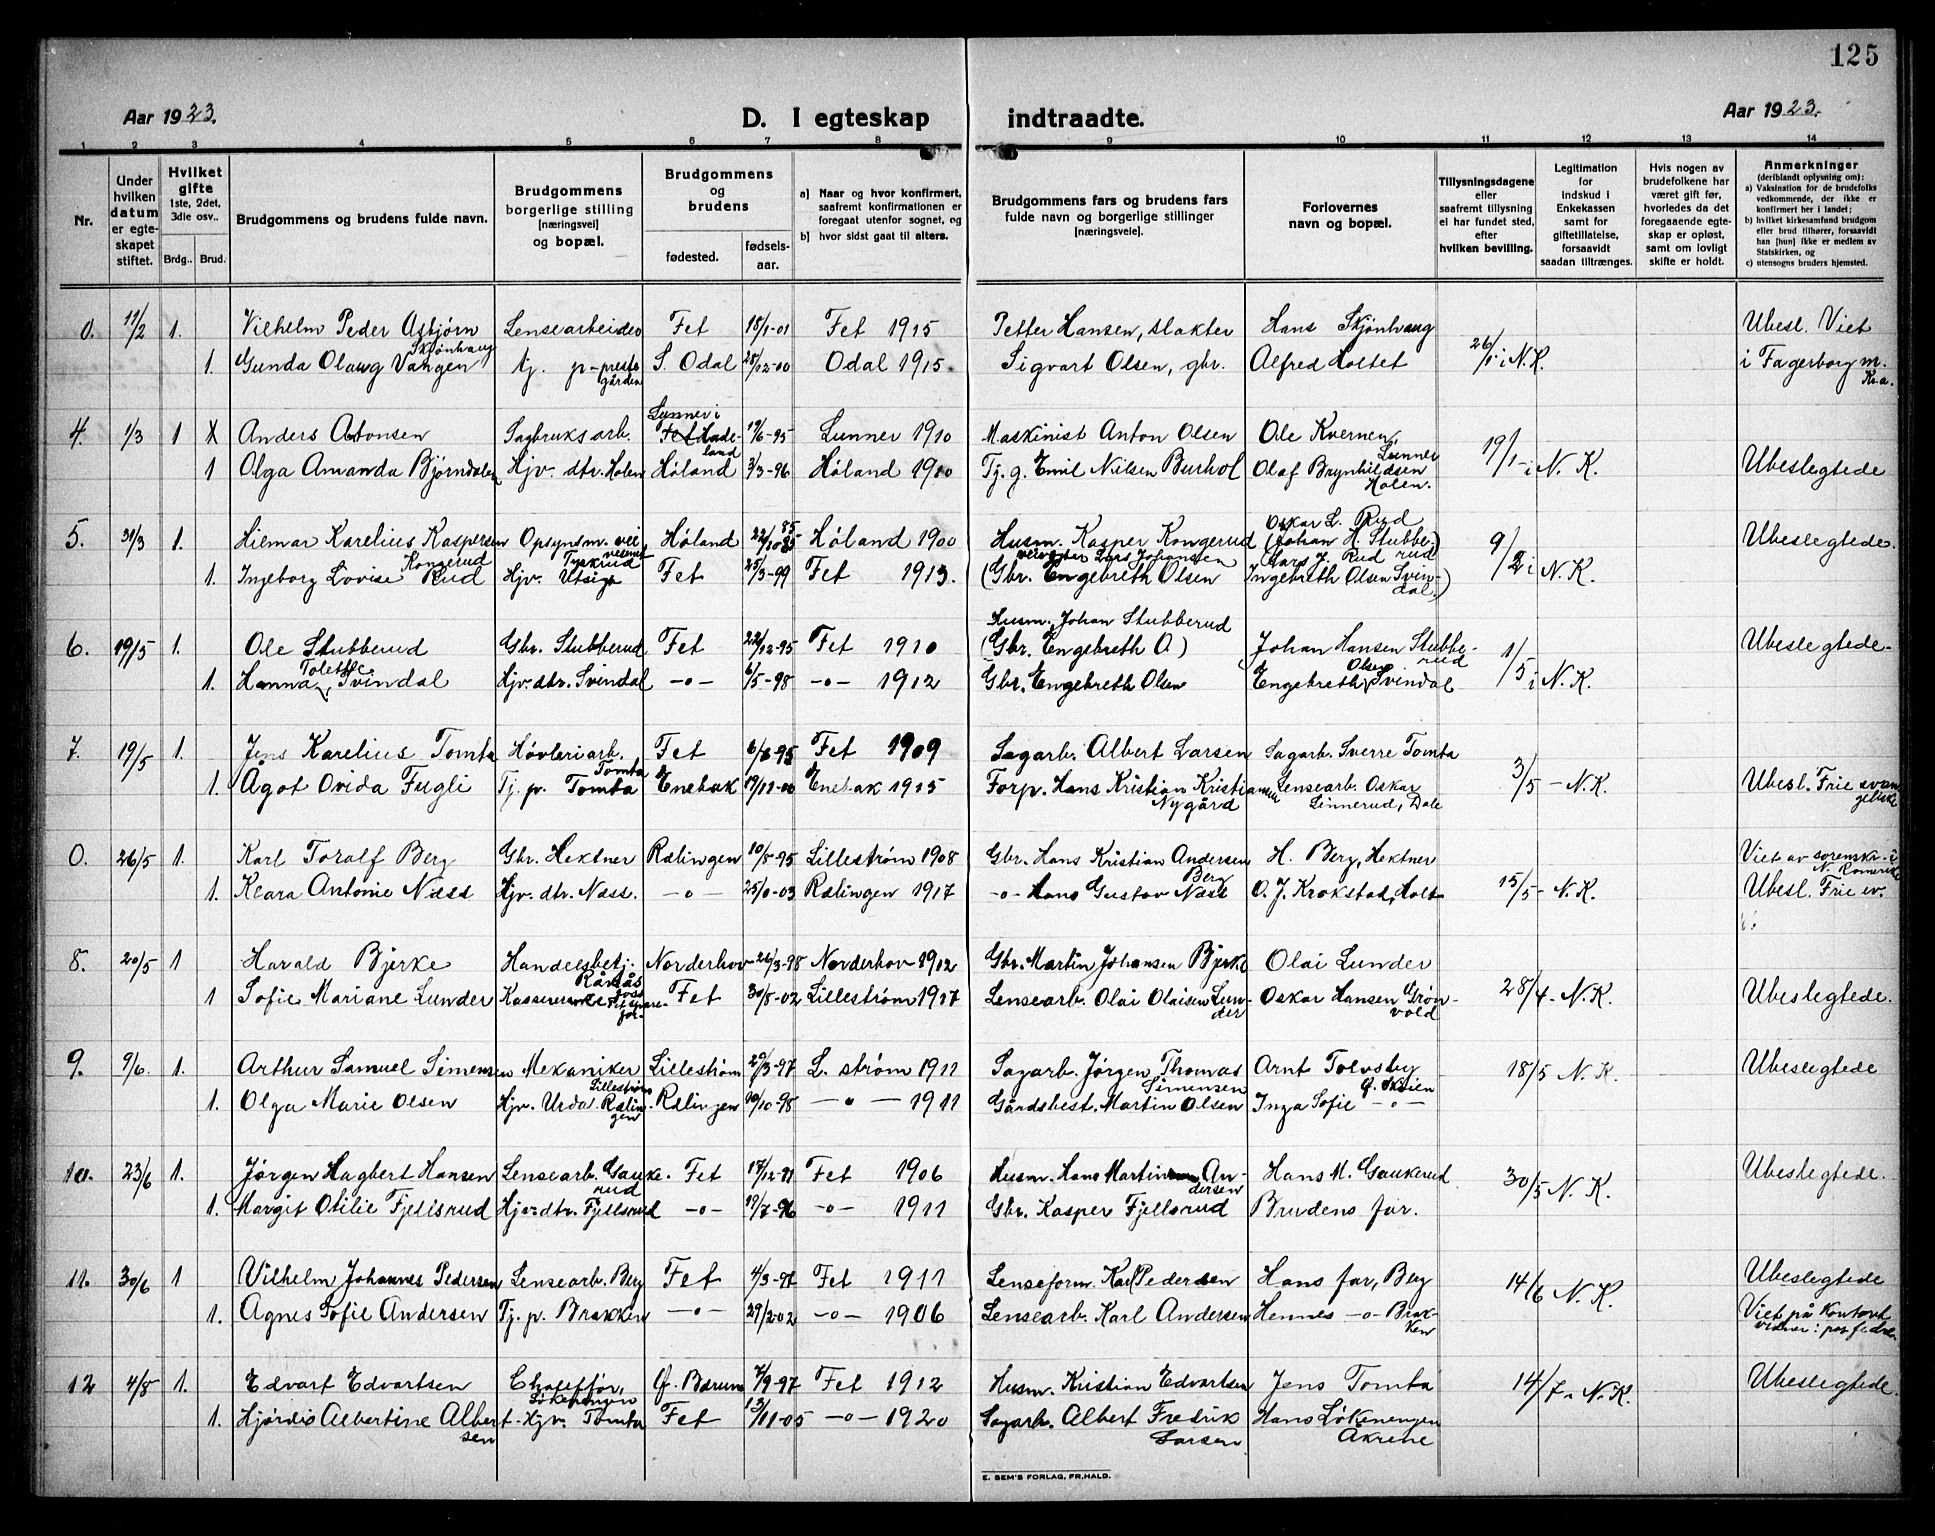 125
Aar 1923.
D. I egteskap indtraadte.
Aar 1923.
1 2 3 4 5 6 7 8 9 10 11 12 13 14
Nr.
Under hvilken datum er egteskapet stiftet.
Hvilket gifte 1ste, 2det, 3die osv..
Brdg.. Brud.
Brudgommens og brudens fulde navn.
Brudgommens borgerlige stilling [næringsvei] og bopæl.
Brudgommens og brudens
fødested.
fødsels-aar.
a) Naar og hvor konfirmert, saafremt konfirmationen er foregaat utenfor sognet, og
b) hvor sidst gaat til alters.
Brudgommens fars og brudens fars fulde navn og borgerlige stillinger [næringsveie].
Forlovernes navn og bopæl.
Tillysningsdagene eller saafremt tillysning ei har fundet sted, efter hvilken bevilling.
Legitimation for indskud i Enkekassen samt for giftetillatelse, forsaavidt saadan tiltrænges.
Hvis nogen av brudefolkene har været gift før, hvorledes da det foregaaende egteskap er opløst, samt om lovligt skifte er holdt.
Anmerkninger (deriblandt oplysning om):
a) Vaksination for de brudefolks vedkommende, der ikke er konfirmert her i landet;
b) hvilket kirkesamfund brudgom eller brud tilhører, forsaavidt han [hun] ikke er medlem av Statskirken, og
c) utensogns bruders hjemsted.
0. 11/2 1. Vilhelm Peder Asbjørn Skjønhaug Lensearbeider Fet 18/1-01 Fet 1915 Petter Hansen, slakter Hans Skjønhaug Ubesl. Viet
1. Gunda Olaug Vangen tj. p-prestegården S. Odal 28/12-00 Odal 1915. Sigvart Olsen, gbr. Alfred Holtet 26/1 i N.K. i Fagerborg m. Kr.a.
4. 1/3 1 X Anders Antonsen Sagbruksarb. Lunner i Hadeland 19/6-95 Lunner 1910 Maskinist Anton Olsen Ole Kvernen, Lunner
1 Olga Amanda Bjørndalen Hjv. dtr. Holen Høland 3/3-96 Høland 1910 Tj. g. Emil Nilsen Burhol Olaf Brynhildsen Holen. 19/1-i N.K. Ubeslegtede
5. 31/3 1. Hilmar Karelius Kaspersen Kongerud Opsynsm. vei Høland 22/10 85 Høland 1900 Husm. Kasper Kongerud Oskar L. Rud (Johan H. Stubberud Ubeslegtede.
1. Ingeborg Lovise Rud Hjv. Utsigt Fet 25/3-99 Fet 1913. Lars Johansen (Gbr. Engebreth Olsen Lars J. Rud Ingebreth Olsen Svindal.) 9/2 i N.K.
6. 19/5 1. Ole Stubberud Gbr. Stubberud Fet 22/12-95 Fet 1910 Husm. Johan Stubberud (Gbr. Engebreth O) Johan Hansen Stubberud Ubeslegtede.
1. Hanna Tolette Svindal Hjv. dtr. Svindal -o- 6/5-98 -o- 1912 Gbr. Engebreth Olsen Engebreth Olsen Svindal 1/5 i N.K.
7. 19/5 1. Jens Karelius Tomta Høvleriarb. Tomta Fet 6/8-95 Fet 1909 Sagarb. Albert Larsen Sagarb. Sverre Tomta
1. Ågot Ovida Fugli Tj. p. Tomta Enebak 19/11-00 Enebak 1915 Forp. Hans Kristian Kristiansen Nygård Lensearb. Oskar Linnerud, Dale 3/5 - N.K. Ubesl. Frie evangeliske
0. 26/5 1. Karl Toralf Berg Gbr. Hektner Rælingen 10/8-95 Lillestrøm 1908 Gbr. Hans Kristian Andersen Berg H. Berg, Hektner Viet av sorenskr. i N. Romerike
1. Klara Antonie Næss Hjv. dtr. Næss. -o- Rælingen 1917 -o- Hans Gustav Næss O. J. Krokstad, Holt 15/5 - N.K. Ubesl. Frie ev.
8. 20/5 1 Harald Bjerke Handelsbetj. Rånås Norderhov 26/3-98 Norderhov 1912 Gbr. Martin Johansen Bjerke Olai Lunder
1 Sofie Mariane Lunder Fet 30/8-02 Lillestrøm 1917 Lensearb. Olai Olaisen Lunder Oskar Hansen Grønvold 28/4 - N.K. Ubeslegtede.
9. 9/6. 1. Arthur Samuel Simensen Mekaniker Lillestrøm Lillestrøm 29/3-97 L. strøm 1911 Sagarb. Jørgen Thomas Simensen Arnt Tolvsby Ø. Skien Ubeslegtede
1. Olga Marie Olsen Hjv. Urda Rælingen Rælingen 10/10-98 -o- 1911 Gårdsbest. Martin Olsen Inga Sofie -o- 18/5 N.K.
10. 23/6 1. Jørgen Hagbert Hansen Lensearb. Gaukerud Fet 17/12-91 Fet 1906 Husm. Hans Martin Andersen Hans M. Gaukerud Ubeslegtede.
1. Margit Otilie Fjellsrud Hjv. dtr. Fjellsrud -o- 19/7-96 -o- 1911 Gbr. Kasper Fjellsrud Brudens far. 30/5 N.K.
11. 30/6 1 Vilhelm Johannes Pedersen Lensearb. Berg Fet 4/3-97 Fet 1911 Lenseform. Karl Pedersen Hans far, Berg 14/6 N.K. Ubeslegtede
1. Agnes Sofie Andersen Tj. p. Brakken -o- 29/2-02 -o- 1906 Lensearb. Karl Andersen Hennes -o- Brakken Viet på kontoret
12 4/8 1. Edvart Edvartsen Chauffør, Løkenengen Ø. Bærum 7/9-97 Fet 1912 Husm. Kristian Edvartsen Jens Tomta Ubeslegtede.
1. Hjørdis Albertine Albertsen Hjv. Tomta Fet 13/11-05 -o- 1920 Sagarb. Albert Fredrik Larsen Hans Løkenengen Åkrene 14/7 - N.K.
E. SEM'S FORLAG, FR.HALD.